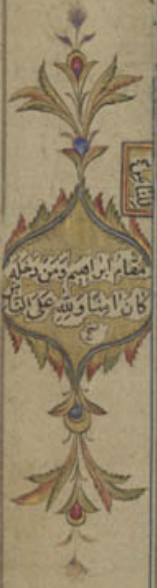 مقام ابراهيم ومن دخله
كان امنا ولله على الناس